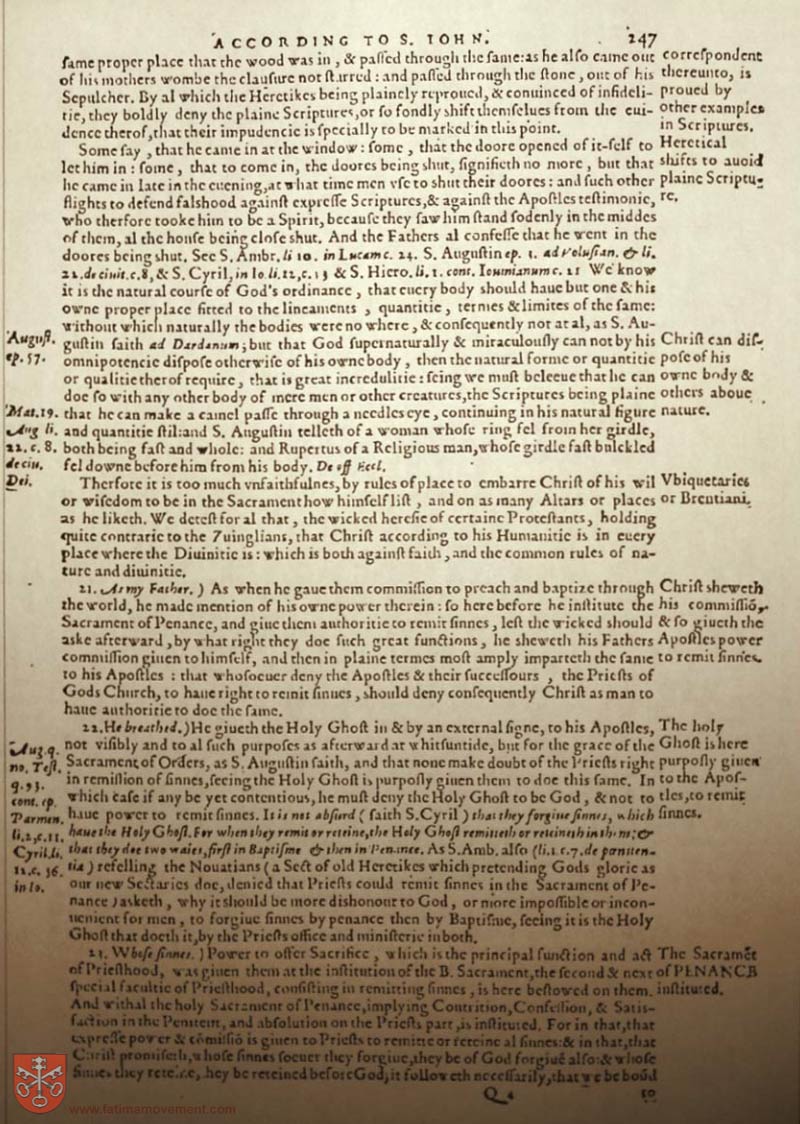 ACCORDING TO S. IOHN. 247
ſame proper place that the wood was in, & paſſed through the ſame: as he alſo came out
of his mothers wombe the clauſure not ſtirred: and paſſed through the ſtone, out of his
Sepulcher. By al which the Heretikes being plainely reproued, & conuinced of infideli-
tie, they boldly deny the plaine Scriptures, or ſo fondly shift themſelues from the eui-
dence therof, that their impudencie is ſpecially to be marked in this point.
correſpondent
thereunto, is
proued by
other examples
in Scriptures.
Some ſay, that he came in at the window: ſome, that the doore opened of it-ſelf to
let him in: ſome, that to come in, the doores being shut, ſignifieth no more, but that
he came in late in the euening, at what time men vſe to shut their doores: and ſuch other
flights to defend falshood againſt expreſſe Scriptures, & againſt the Apoſtles teſtimonie,
who therfore tooke him to be a Spirit, becauſe they ſaw him ſtand ſodenly in the middes
of them, al the houſe being cloſe shut. And the Fathers al confeſſe that he went in the
doores being shut. See S. Ambr. li 10. in Lucam c. 24. S. Auguſtin ep. 3. ad Voluſian. & li.
22. de ciuit. c. 8, & S. Cyril, in Io. li. 12, c. 53 & S. Hiero. li. 1. cont. Iouinianum c. 21 We know
it is the natural courſe of God's ordinance, that euery body should haue but one & his
owne proper place fitted to the lineaments, quantitie, termes & limites of the ſame:
without which naturally the bodies were no where, & conſequently not at al, as S. Au-
guſtin ſaith ad Dardanum; but that God ſupernaturally & miraculouſly can not by his
omnipotencie diſpoſe otherwiſe of his owne body, then the natural forme or quantitie
or qualitie therof require, that is great incredulitie: ſeing we muſt beleeue that he can
doe ſo with any other body of mere men or other creatures, the Scriptures being plaine
that he can make a camel paſſe through a needles eye, continuing in his natural figure
and quantitie ſtil: and S. Auguſtin telleth of a woman whoſe ring fel from her girdle,
both being faſt and whole: and Rupertus of a Religious man, whoſe girdle faſt buckled
fel downe before him from his body. De off Eccl.
Heretical
shifts to auoid
plaine Scriptu-
re.
Auguſt.
ep. 57.
Mat. 19.
Aug li.
22. c. 8.
de ciu.
Dei.
Chriſt can diſ-
poſe of his
owne body &
others aboue
nature.
Therfore it is too much vnfaithfulnes, by rules of place to embarre Chriſt of his wil
or wiſedom to be in the Sacrament how himſelf liſt, and on as many Altars or places
as he liketh. We deteſt for al that, the wicked hereſie of certaine Proteſtants, holding
quite contrarie to the Zuinglians, that Chriſt according to his Humanitie is in euery
place where the Diuinitie is: which is both againſt faith, and the common rules of na-
ture and diuinitie.
Vbiquetaries
or Brentiani.
21. As my Father.) As when he gaue them commiſſion to preach and baptize through
the world, he made mention of his owne power therein: ſo here before he inſtitute the
Sacrament of Penance, and giue them authoritie to remit ſinnes, leſt the wicked should
aske afterward, by what right they doe ſuch great functions, he sheweth his Fathers
commiſſion giuen to himſelf, and then in plaine termes moſt amply imparteth the ſame
to his Apoſtles: that whoſoeuer deny the Apoſtles & their ſucceſſours, the Prieſts of
Gods Church, to haue right to remit ſinnes, should deny conſequently Chriſt as man to
haue authoritie to doe the ſame.
Chriſt sheweth
his commiſſiõ,
& ſo giueth the
Apoſtles power
to remit ſinnes.
22. He breathed.) He giueth the Holy Ghoſt in & by an external ſigne, to his Apoſtles,
not viſibly and to al ſuch purpoſes as afterward at whitſuntide, but for the grace of the
Sacrament of Orders, as S. Auguſtin ſaith, and that none make doubt of the Prieſts right
in remiſſion of ſinnes, ſeeing the Holy Ghoſt is purpoſly giuen them to doe this ſame. In
which caſe if any be yet contentious, he muſt deny the Holy Ghoſt to be God, & not to
haue power to remit ſinnes. It is not abſurd (ſaith S. Cyril) that they forgiue ſinnes, which
haue the Holy Ghoſt. For when they remit or reteine, the Holy Ghoſt remitteth or reteineth in them; &
that they doe two waies, firſt in Baptiſme & then in Penance. As S. Amb. alſo (li. 1. c. 7. de pœniten-
tia) refelling the Nouatians (a Sect of old Heretikes which pretending Gods glorie as
our new Sectaries doe, denied that Prieſts could remit ſinnes in the Sacrament of Pe-
nance) asketh, why it should be more dishonour to God, or more impoſſible or incon-
uenient for men, to forgiue ſinnes by penance then by Baptiſme, ſeeing it is the Holy
Ghoſt that doeth it, by the Prieſts office and miniſterie in both.
Aug. q.
no. Teſt.
q. 93.
cont. ep.
Parmen.
li. 2, c. 11.
Cyril. li.
12. c. 56.
in Io.
The holy
Ghoſt is here
purpoſly giuen
to the Apoſ-
tles, to remit
ſinnes.
23. Whoſe ſinnes.) Power to offer Sacrifice, which is the principal function and act
of Prieſthood, was giuen them at the inſtitution of the B. Sacrament, the ſecond & next
ſpecial facultie of Prieſthood, conſiſting in remitting ſinnes, is here beſtowed on them.
And withal the holy Sacrament of Penance, implying Contrition, Confeſſion, & Satis-
faction in the Penitent, and abſolution on the Prieſts part, is inſtituted. For in that, that
expreſſe power & cõmiſſiõ is giuen to Prieſts to remitte or reteine al ſinnes: & in that, that
Chriſt promiſeth, whoſe ſinnes ſoeuer they forgiue, they be of God forgiuẽ alſo: & whoſe
ſinnes they reteine, they be reteined before God, it followeth neceſſarily, that we be boũd
The Sacramẽt
of PENANCE
inſtituted.
Q 4 to
www.fatimamovement.com